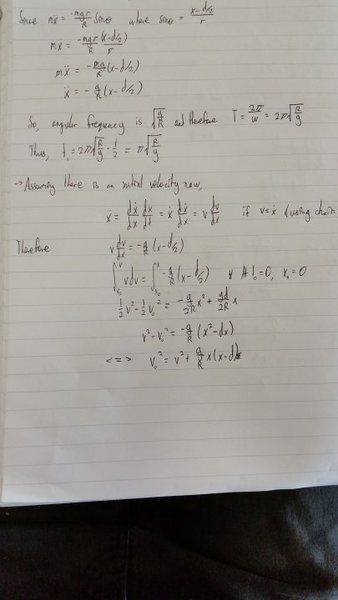 Since mẍ = -mgr/R sinθ where sinθ = (x-d/2)/r
mẍ = -mgr/R (x-d/2)/r
mẍ = -mg/R (x-d/2)
ẍ = -g/R (x-d/2)
So, angular frequency is √(g/R) and therefore T = 2π/ω = 2π√(R/g)
Thus, t₁ = 2π√(R/g) · 1/2 = π√(R/g)
→ Assuming there is an initial velocity now,
ẍ = dẋ/dx dx/dt = ẋ dẋ/dx = v dv/dx if v = ẋ (using chain
Therefore v dv/dx = -g/R (x-d/2)
∫ᵥ₀ᵛ v dv = ∫ₓ₀ˣ -g/R (x-d/2) At t₀=0, x₀=0
1/2 v² - 1/2 v₀² = -g/2R x² + gd/2R x
v² - v₀² = -g/R (x² - dx)
<=> v₀² = v² + g/R x(x-d)